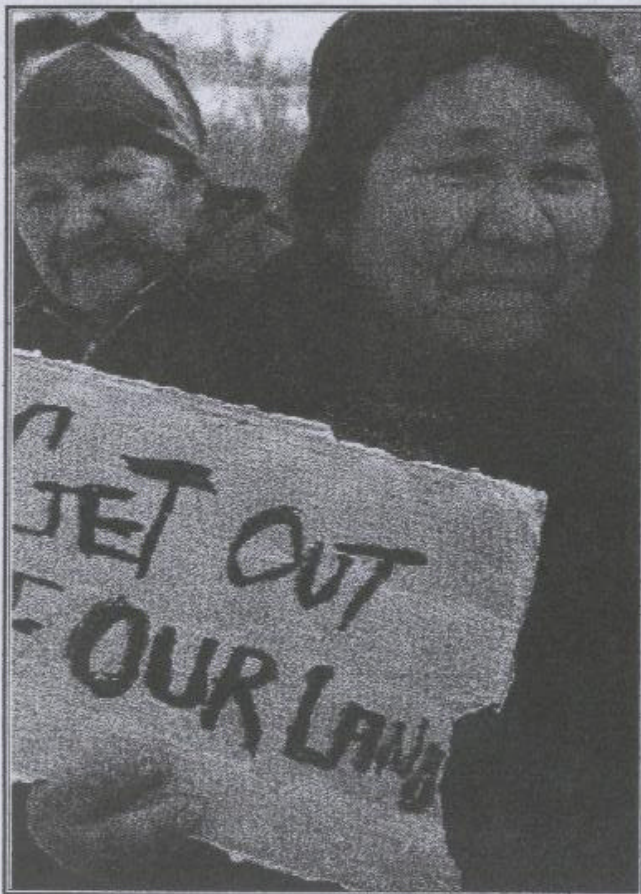 GET OUT
OUR LAND